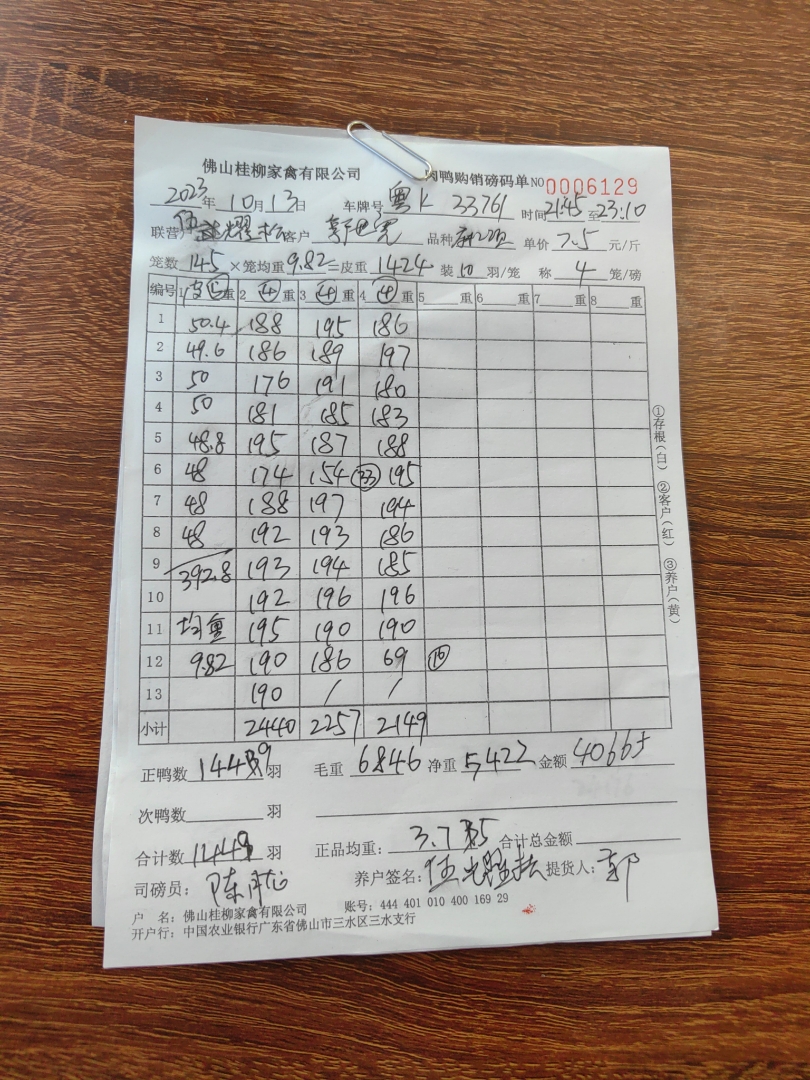 佛山桂柳家禽有限公司 肉鸭购销磅码单 NO 0006129
2023年10月13日 车牌号 粤K 33761 时间 21:45 至 23:10
联营户 客户 品种 单价 7.5 元/斤
笼数 145 ×笼均重 9.82 =皮重 1424 装 10 羽/笼 称 4 笼/磅
编号 1 重 2 ④ 重 3 ④ 重 4 ④ 重 5 重 6 重 7 重 8 重
1 50.4 188 195 186
2 49.6 186 189 197
3 50 176 191 180
4 50 181 185 183
5 48.8 195 187 188
6 48 174 154 195
7 48 188 197 194
8 48 192 193 186
9 392.8 193 194 185
10 192 196 196
11 均重 195 190 190
12 9.82 190 186 69
13 190 / /
小计 2440 2257 2149
正鸭数 羽 毛重 6846 净重 5422 金额 40665
次鸭数 羽
合计数 羽 正品均重: 合计总金额
司磅员: 养户签名: 提货人: 郭
户 名: 佛山桂柳家禽有限公司 账号: 444 401 010 400 169 29
开户行: 中国农业银行广东省佛山市三水区三水支行
①存根(白) ②客户(红) ③养户(黄)